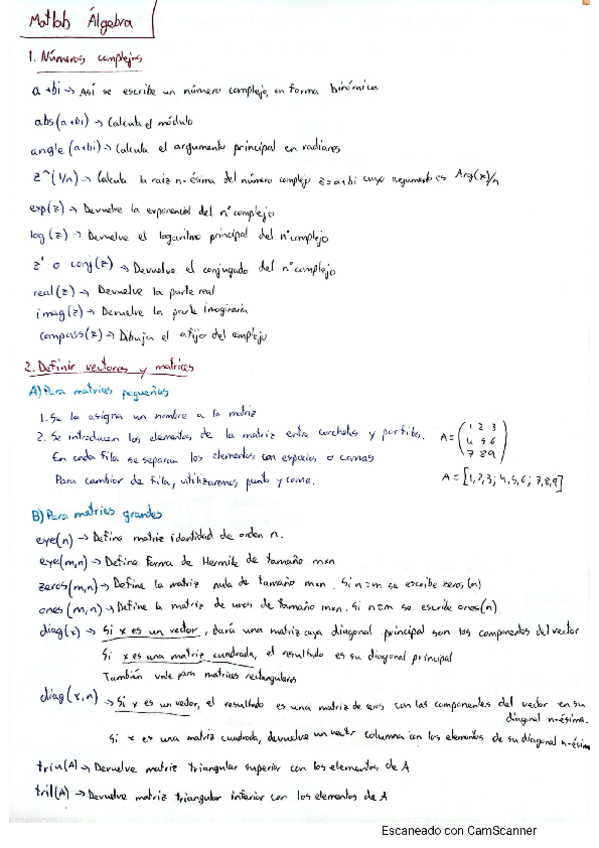 Matlab Álgebra
1. Números complejos
a+bi → Así se escribe un número complejo, en forma binómica
abs(a+bi) → Calcula el módulo
angle (a+bi) → Calcula el argumento principal en radianes
z^(1/n) → Calcula la raiz n-ésima del número complejo z=a+bi cuyo argumento es Arg(z)/n
exp(z) → Devuelve la exponencial del nº complejo
log(z) → Devuelve el logaritmo principal del nº complejo
z' o conj(z) → Devuelve el conjugado del nº complejo
real(z) → Devuelve la parte real
imag(z) → Devuelve la parte imaginaria
compass(z) → Dibuja el afijo del complejo
2. Definir vectores y matrices
A) Para matrices pequeñas
1. Se la asigna un nombre a la matriz
2. Se introducen los elementos de la matriz entre corchetes y por filas.
En cada fila se separan los elementos con espacios o comas
Para cambiar de fila, utilizaremos punto y coma.
A = (1 2 3
4 5 6
7 8 9)
A = [1,2,3; 4,5,6; 7,8,9]
B) Para matrices grandes
eye(n) → Define matriz identidad de orden n.
eye(m,n) → Define forma de Hermite de tamaño m×n
zeros(m,n) → Define la matriz nula de tamaño m×n. Si n=m se escribe zeros(n)
ones(m,n) → Define la matriz de unos de tamaño m×n. Si n=m se escribe ones(n).
diag(x) → Si x es un vector, dará una matriz cuya diagonal principal son los componentes del vector
Si x es una matriz cuadrada, el resultado es su diagonal principal
También vale para matrices rectangulares
diag(x,n) → Si x es un vector, el resultado es una matriz de ceros con las componentes del vector en su
diagonal n-ésima.
Si x es una matriz cuadrada, devuelve un vector columna con los elementos de su diagonal n-ésim
triu(A) → Devuelve matriz triangular superior con los elementos de A
tril(A) → Devuelve matriz triangular inferior con los elementos de A
Escaneado con CamScanner